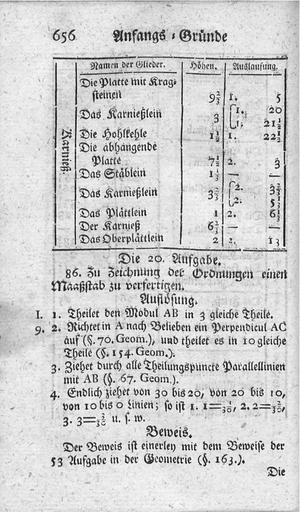 656 Anfangs-Gründe
Namen der Glieder. Höhen. Ausläufung.
Karnieß.
Die Platte mit Krag-
steinen 9⅔ 1. 5
Das Karnießlein 3 1. 20
1. 21½
Die Hohlkehle 1½ 1. 22½
Die abhangende
Platte 7½ 2. 3
Das Stäblein 1⅓ — —
Das Karnießlein 3⅔ 2.
2.
Das Plättlein 1 2. 6½
Der Karnieß 6⅔ — —
Das Oberplättlein 2 2. 13
Die 20. Aufgabe.
86. Zu Zeichnung der Ordnungen einen
Maaßstab zu verfertigen.
Auflösung.
I. 1. Theilet den Modul AB in 3 gleiche Theile.
9. 2. Richtet in A nach Belieben ein Perpendicul AC
auf (§. 70. Geom.), und theilet es in 10 gleiche
Theile (§. 154. Geom.).
3. Ziehet durch alle Theilungspuncte Parallellinien
mit AB (§. 67. Geom.).
4. Endlich ziehet von 30 bis 20, von 20 bis 10,
von 10 bis 0 Linien; so ist 1. 1=1/30, 2. 2=2/30,
3. 3=3/30 u. s. w.
Beweis.
Der Beweis ist einerley mit dem Beweise der
53 Aufgabe in der Geometrie (§. 163.).
Die